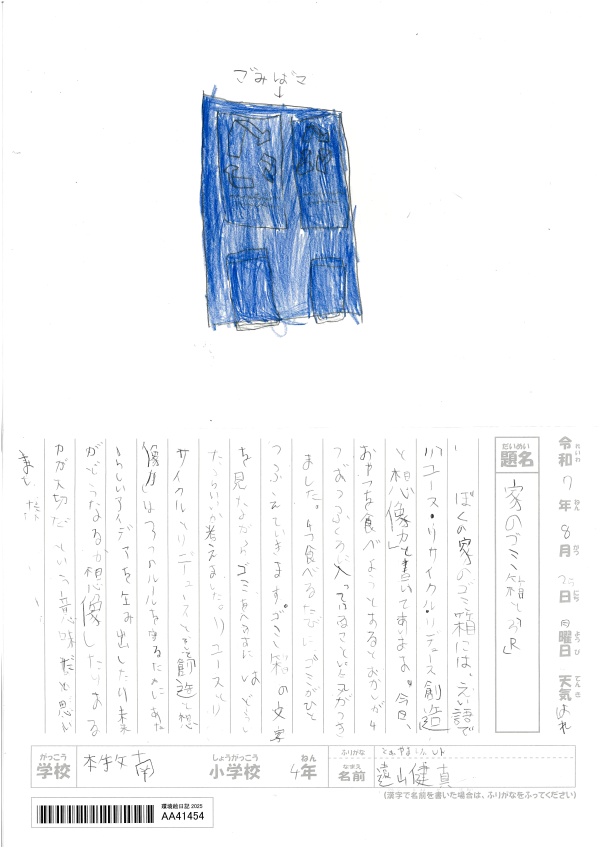 ごみばこ
令和 7年 8月 25日 月曜日 天気 はれ
れいわ ねん がつ にち ようび てんき
だいめい
題名
家のゴミ箱と3R
ぼくの家のゴミ箱には、えい語で
リユース・リサイクル・リデュース創造
と想像力と書いてあります。今日、
おやつを食べようとするとおかしが4
つずつふくろに入っていることに気がつき
ました。4つ食べるたびにゴミがひと
つふえていきます。ゴミ箱の文字
を見ながらゴミをへらすにはどうし
たらいいか考えました。リユースとリ
サイクルとリデュースときと創造と想
像力は3つのルールを守るために あた
らしいアイデアを生み出したり未来
がどうなるか想像したりする
力が大切だという意味だと思い
ました。
がっこう
学校
本牧南
しょうがっこう
小学校
ねん
4年
ふりがな
とおやまけんしん
なまえ
名前
遠山健真
(漢字で名前を書いた場合は、ふりがなをふってください)
環境絵日記 2025
AA41454